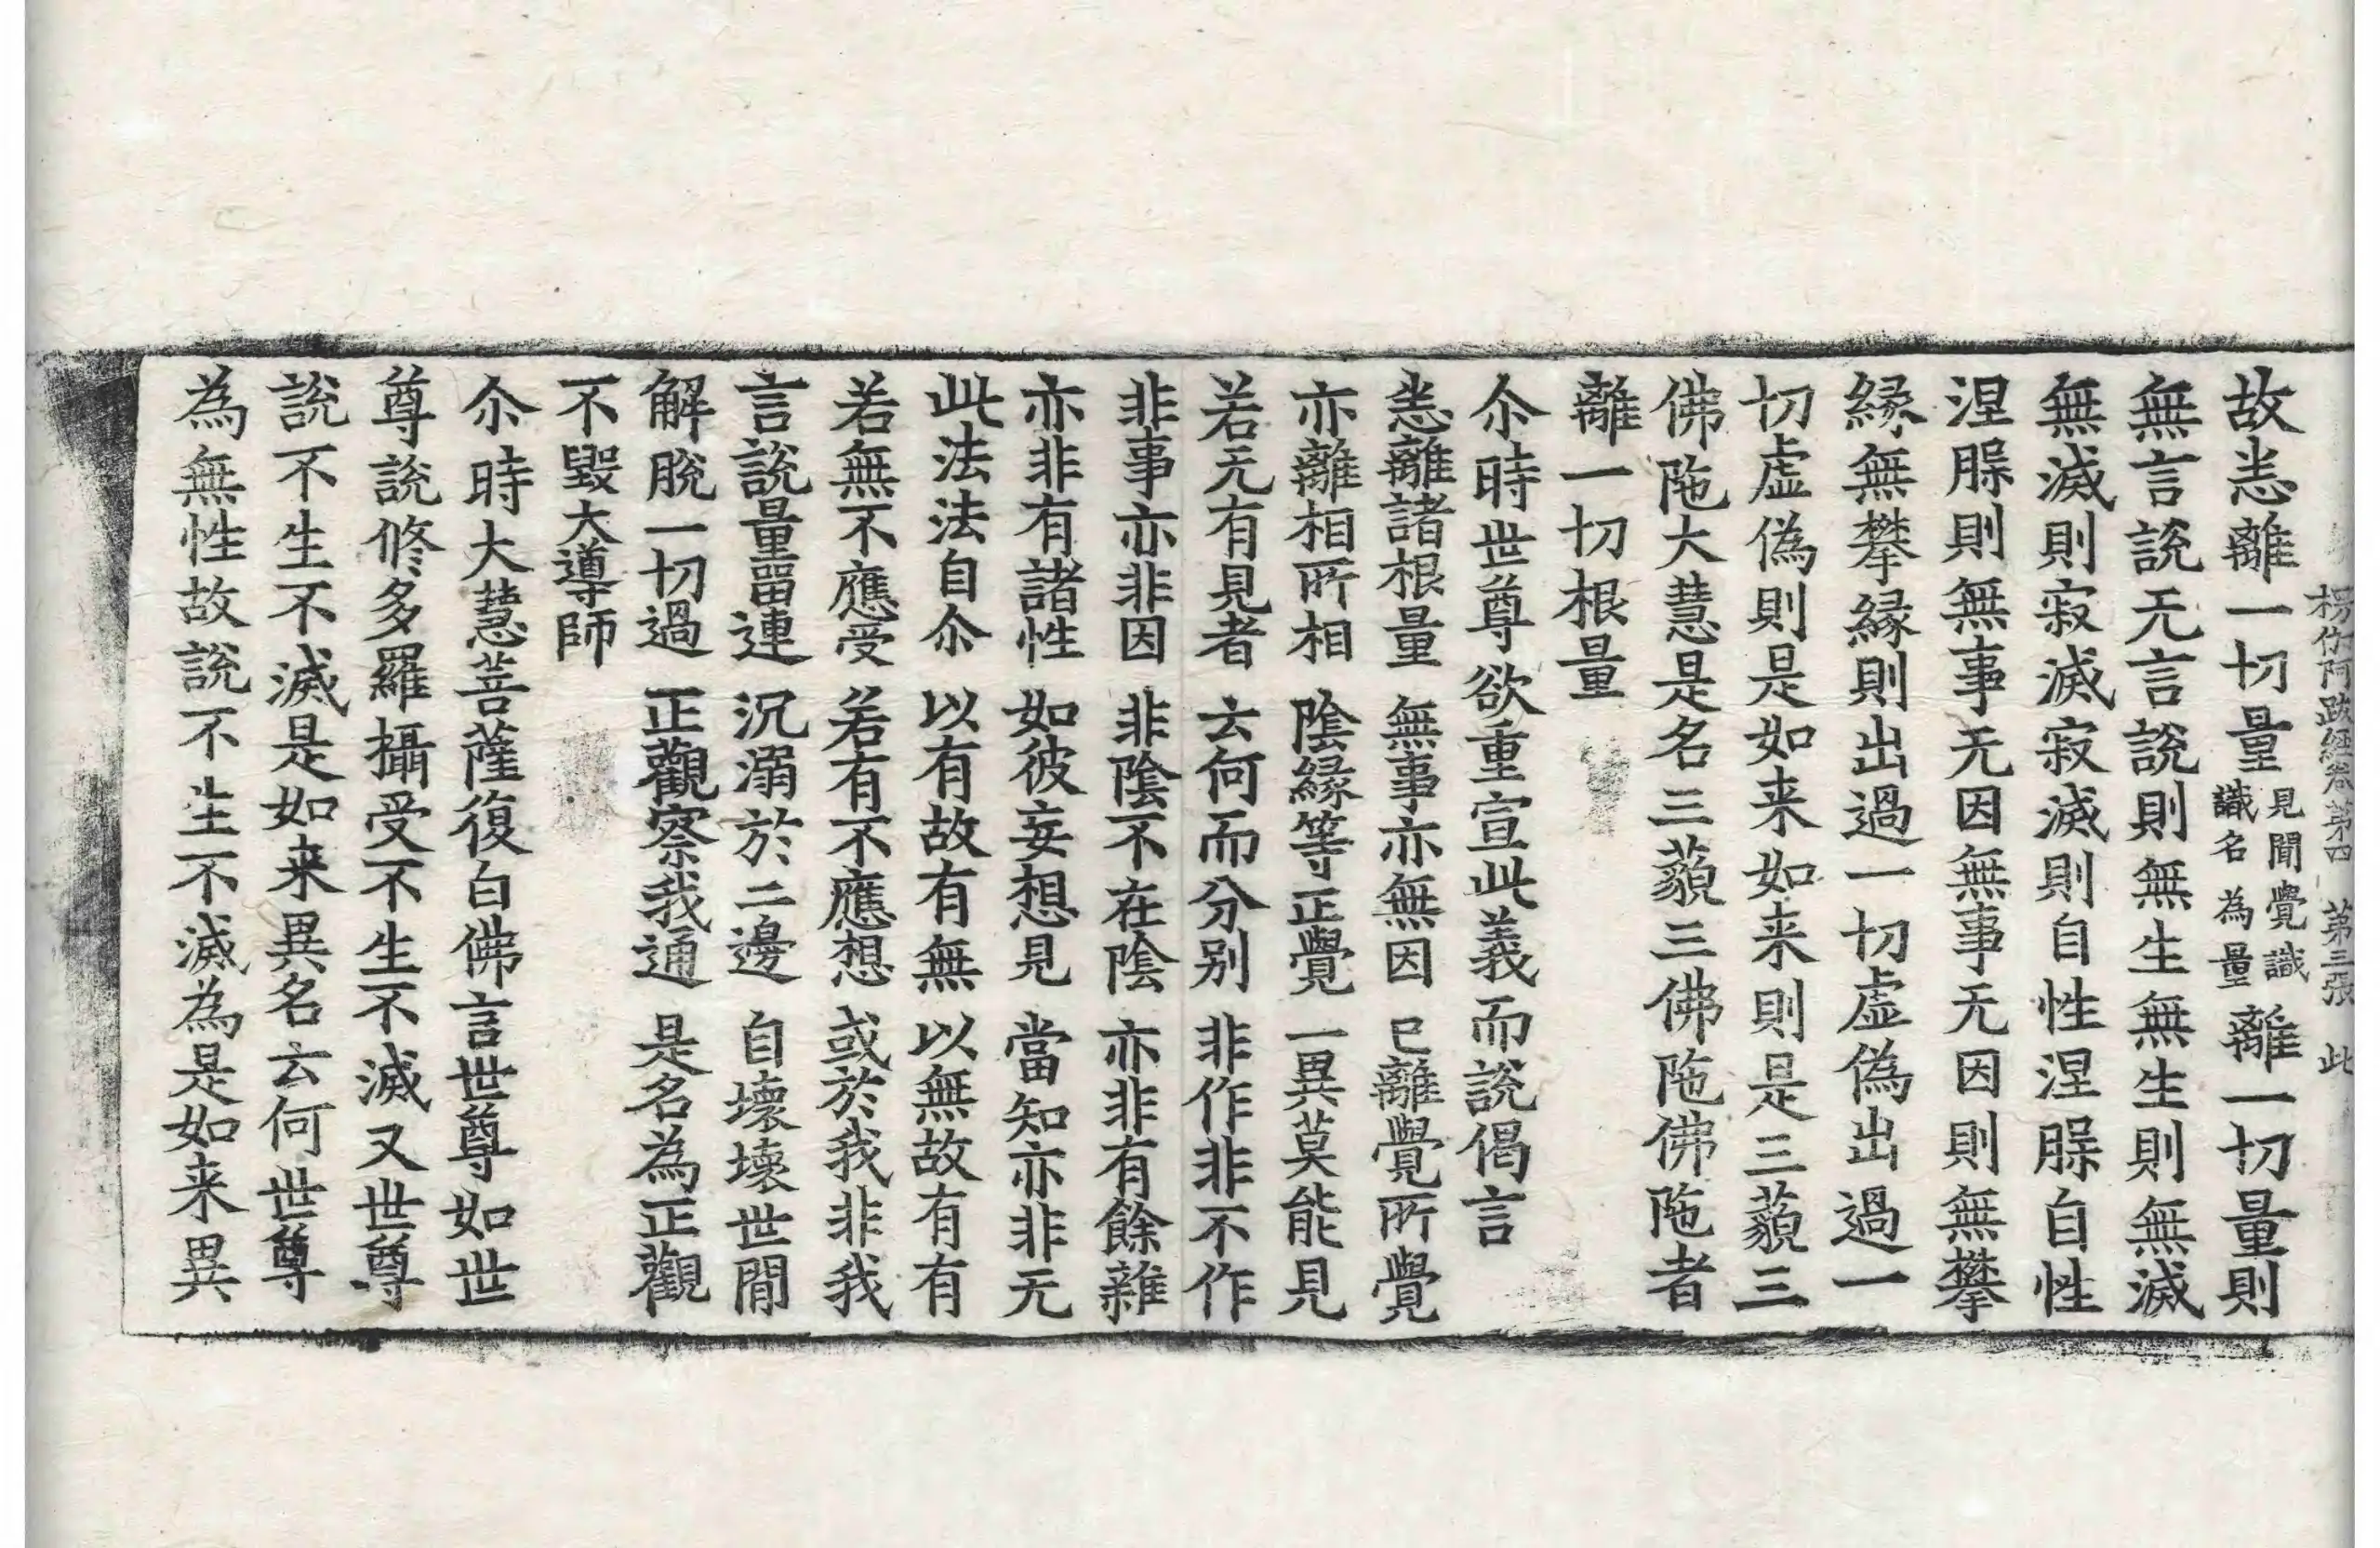 楞伽阿跋経巻第四 第三張 此
故恙離一切量見聞覺識識名為量離一切量則
無言說无言說則無生無生則無滅
無滅則寂滅寂滅則自性涅槃自性
涅槃則無事无因無事无因則無攀
縁無攀縁則出過一切虚偽出過一
切虚偽則是如来如来則是三藐三
佛陁大慧是名三藐三佛陁佛陁者
離一切根量
尒時世尊欲重宣此義而說偈言
恙離諸根量 無事亦無因 已離覺所覺
亦離相所相 陰縁等正覺 一異莫能見
若无有見者 云何而分别 非作非不作
非事亦非因 非陰不在陰 亦非有餘雜
亦非有諸性 如彼妄想見 當知亦非无
此法法自尒 以有故有無 以無故有有
若無不應受 若有不應想 或於我非我
言說量留連 沉溺於二邊 自壞壞世間
解脫一切過 正觀察我通 是名為正觀
不毀大導師
尒時大慧菩薩復白佛言世尊如世
尊說修多羅攝受不生不滅又世尊
說不生不滅是如来異名云何世尊
為無性故說不生不滅為是如来異